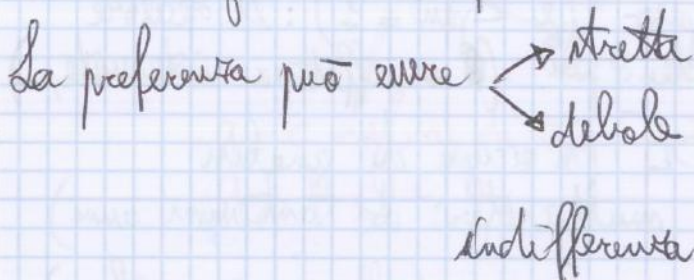 La preferenza può essere stretta
debole
indifferenza